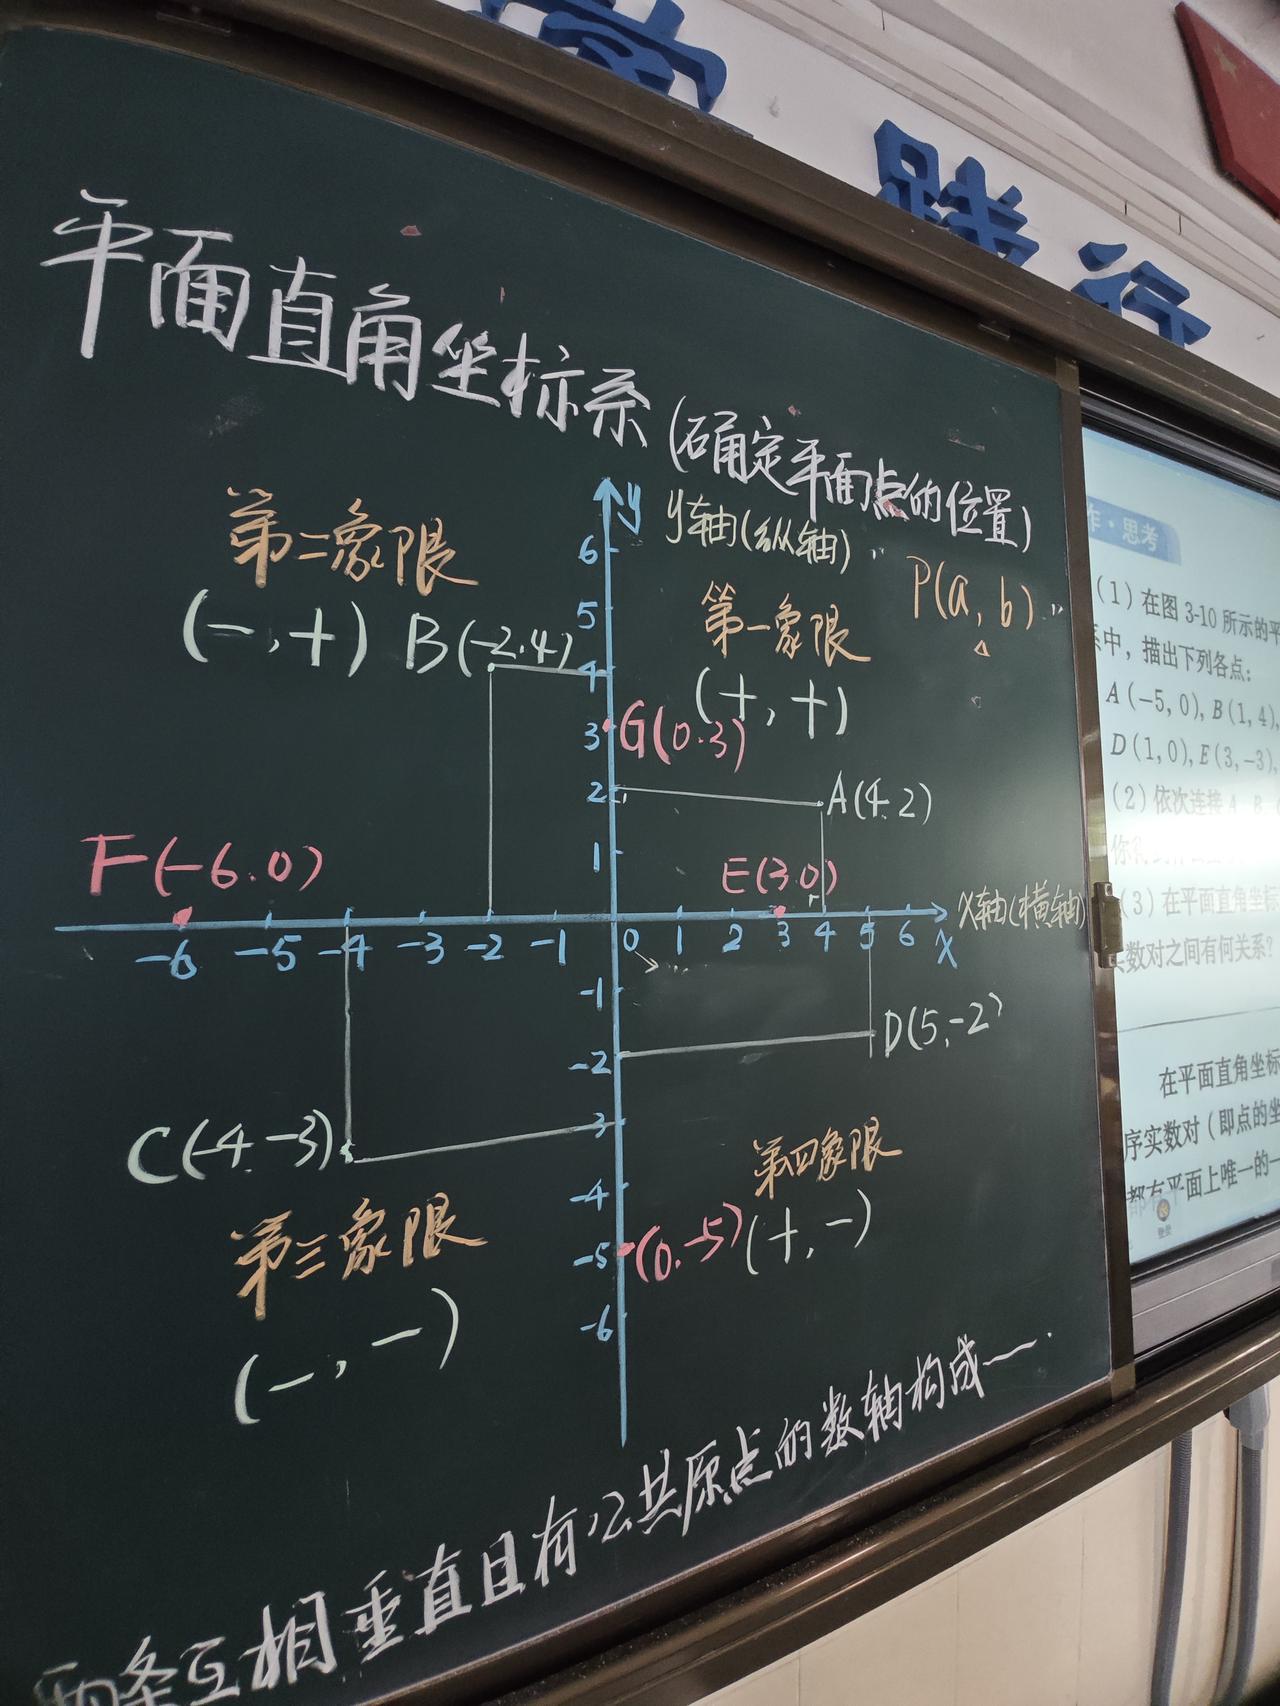 践行
平面直角坐标系(确定平面点的位置)
y
y轴(纵轴)
P(a,b)
第二象限
(-,+)
B(-2.4)
第一象限
(+,+)
G(0.3)
A(4.2)
F(-6.0)
E(3.0)
6
5
4
3
2
1
-6 -5 -4 -3 -2 -1 0 1 2 3 4 5 6 x
x轴(横轴)
-1
-2
3
-4
-5
-6
D(5,-2)
C(-4.-3)
第三象限
(-,-)
(0.-5)
第四象限
(+,-)
两条互相垂直且有公共原点的数轴构成一
作·思考
(1)在图3-10所示的平
系中,描出下列各点:
A(-5,0),B(1,4),
D(1,0),E(3,-3),
(2)依次连接A,B,
(3)在平面直角坐标
实数对之间有何关系?
在平面直角坐标
序实数对(即点的坐
都有平面上唯一的一